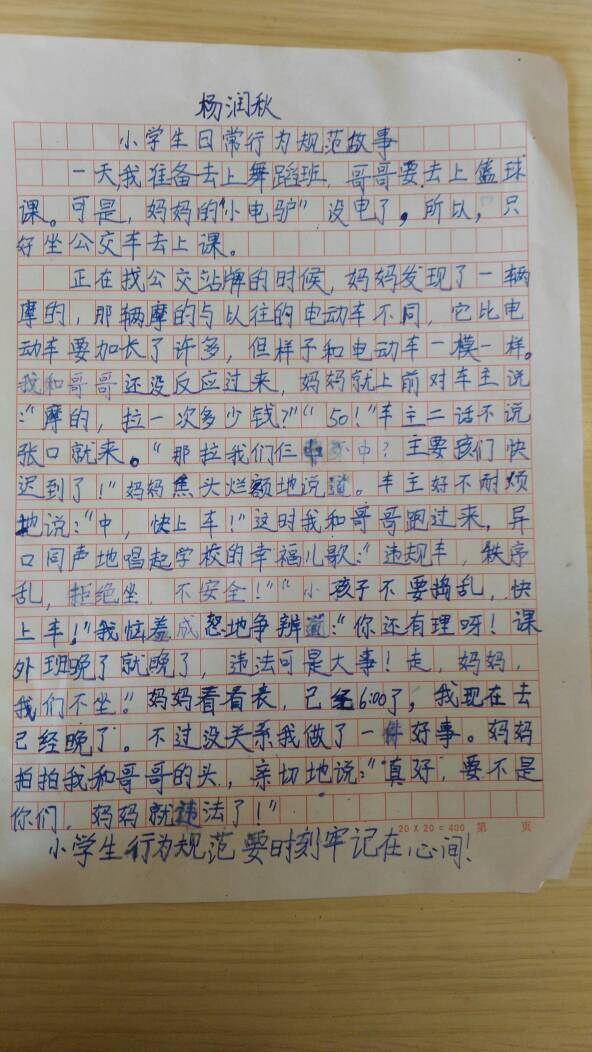 杨润秋
小学生日常行为规范故事
一天,我准备去上舞蹈班,哥哥要去上篮球
课。可是,妈妈的“小电驴”没电了,所以,只
好坐公交车去上课。
正在找公交站牌的时候,妈妈发现了一辆
摩的,那辆摩的与以往的电动车不同,它比电
动车要加长了许多,但样子和电动车一模一样。
我和哥哥还没反应过来,妈妈就上前对车主说
:“摩的,拉一次多少钱?”“50!”车主二话不说
张口就来。“那拉我们仨中不中?主要孩们快
迟到了!”妈妈焦头烂额地说道。车主好不耐烦
地说:“中,快上车!”这时我和哥哥跑过来,异
口同声地唱起学校的幸福儿歌:“违规车,秩序
乱,拒绝坐,不安全!”“小孩子不要捣乱,快
上车!”我恼羞成怒地争辨道:“你还有理呀!课
外班晚了就晚了,违法可是大事!走,妈妈,
我们不坐。”妈妈看看表,已经6:00了,我现在去
已经晚了。不过没关系我做了一件好事。妈妈
拍拍我和哥哥的头,亲切地说:“真好,要不是
你们,妈妈就违法了!”
20×20=400 第 页
小学生行为规范要时刻牢记在心间!